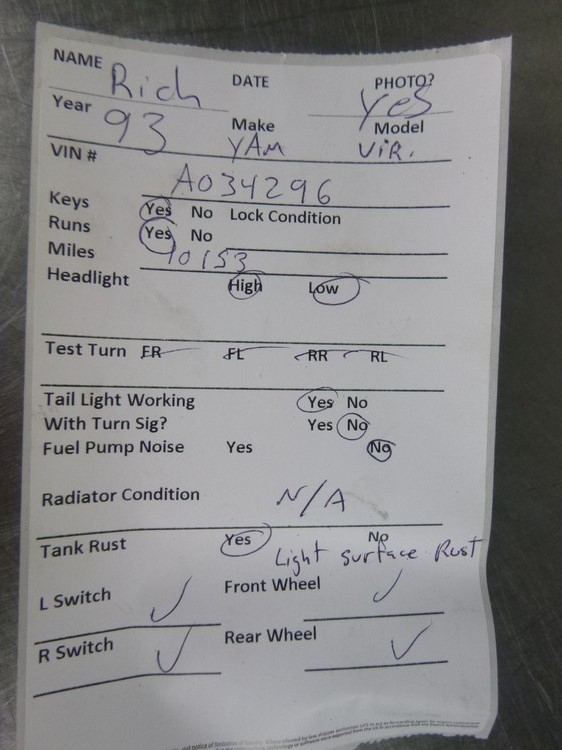 NAME Rich DATE PHOTO? Yes
Year 93 Make YAM Model ViR.
VIN # A034296
Keys Yes No Lock Condition
Runs Yes No
Miles 10153
Headlight High Low
Test Turn FR FL RR RL
Tail Light Working Yes No
With Turn Sig? Yes No
Fuel Pump Noise Yes No
Radiator Condition N/A
Tank Rust Yes No
Light surface Rust
L Switch ✓ Front Wheel ✓
R Switch ✓ Rear Wheel ✓